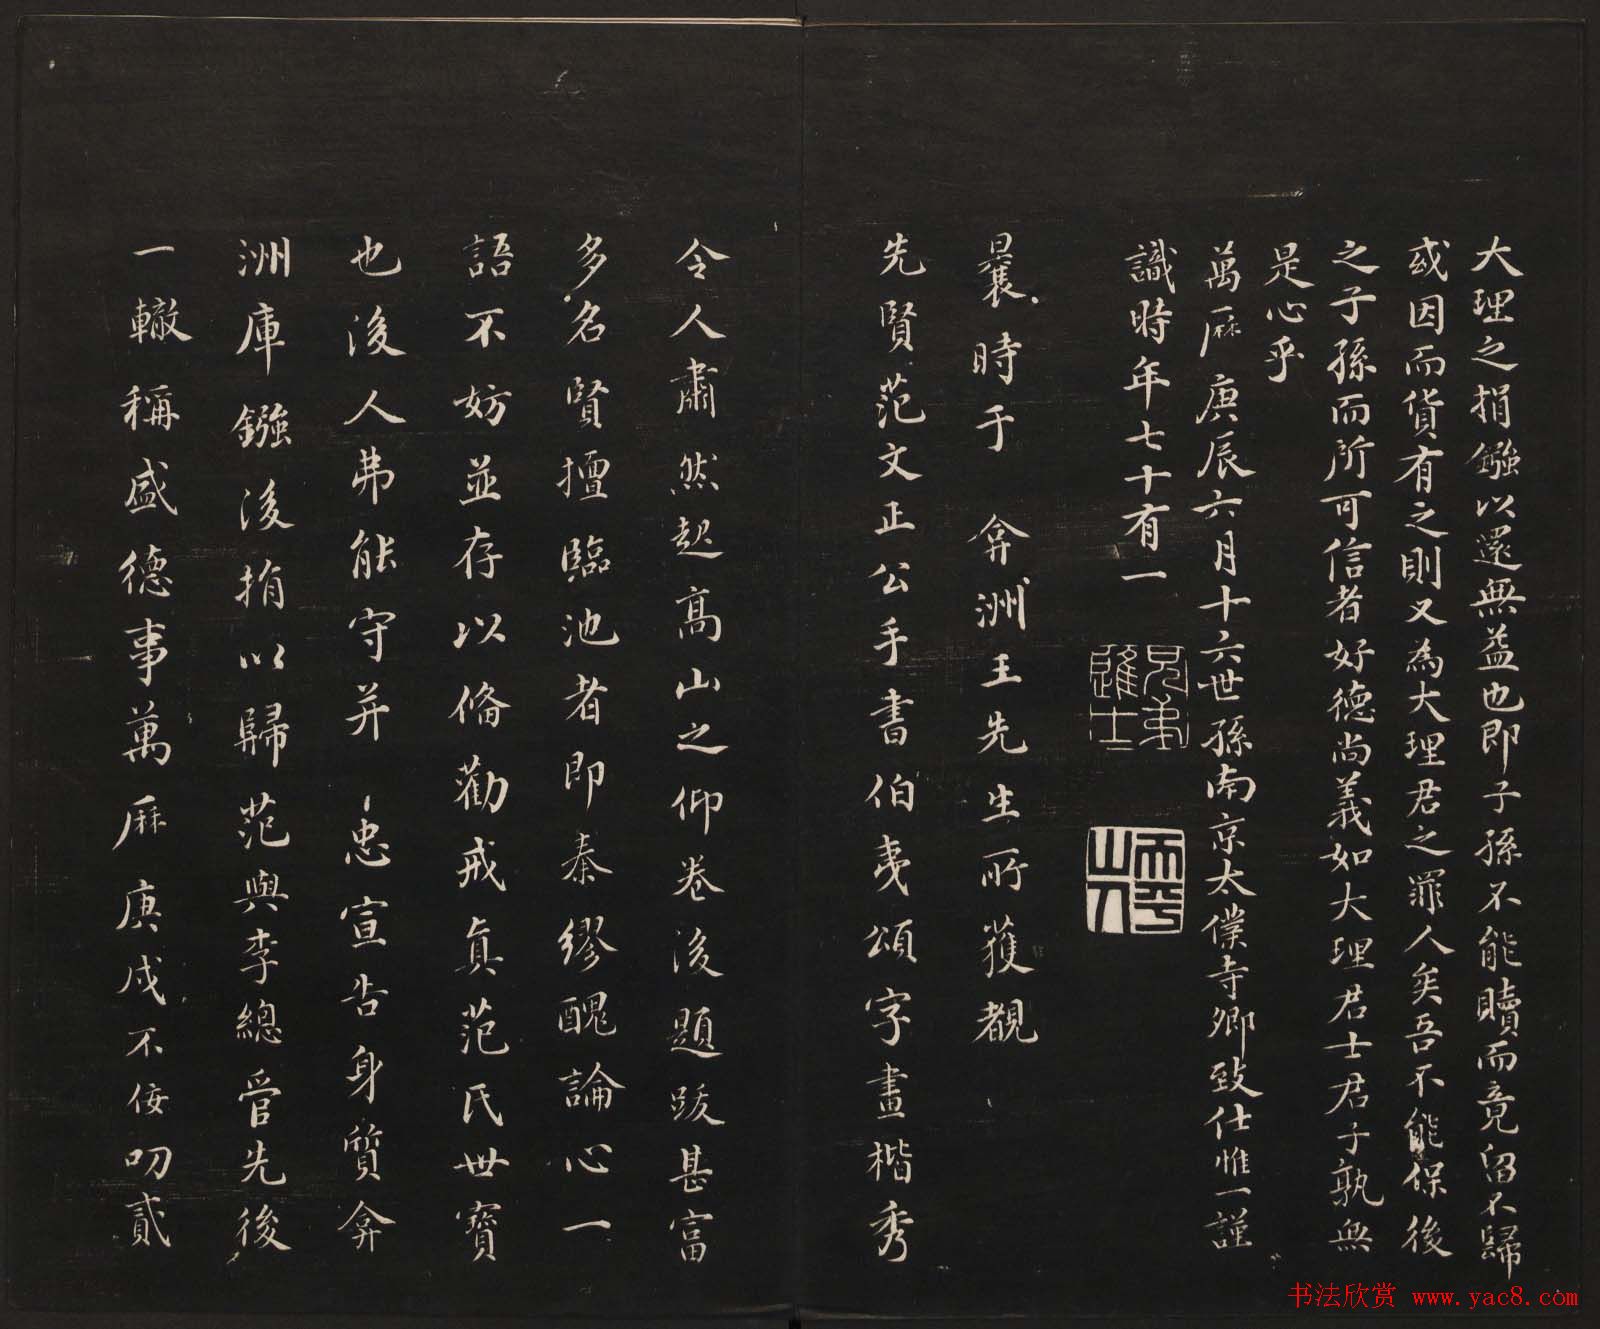 大理之捐鏹以還無益也即子孫不能贖而竟留不歸
或因而貨有之則又為大理君之罪人矣吾不能保後
之子孫而所可信者好德尚義如大理君士君子孰無
是心乎
萬厤庚辰六月十六世孫南京太僕寺卿致仕惟一謹
識時年七十有一
曩時于弇洲王先生所獲覩
先賢范文正公手書伯夷頌字畫楷秀
令人肅然起高山之仰卷後題跋甚富
多名賢擅臨池者即秦繆醜論心一
語不妨並存以俻勸戒真范氏世寶
也後人弗能守并忠宣告身質弇
洲庫鏹後捐以歸范與李總管先後
一轍稱盛德事萬厤庚戌不佞叨貳
书法欣赏 www.yac8.com